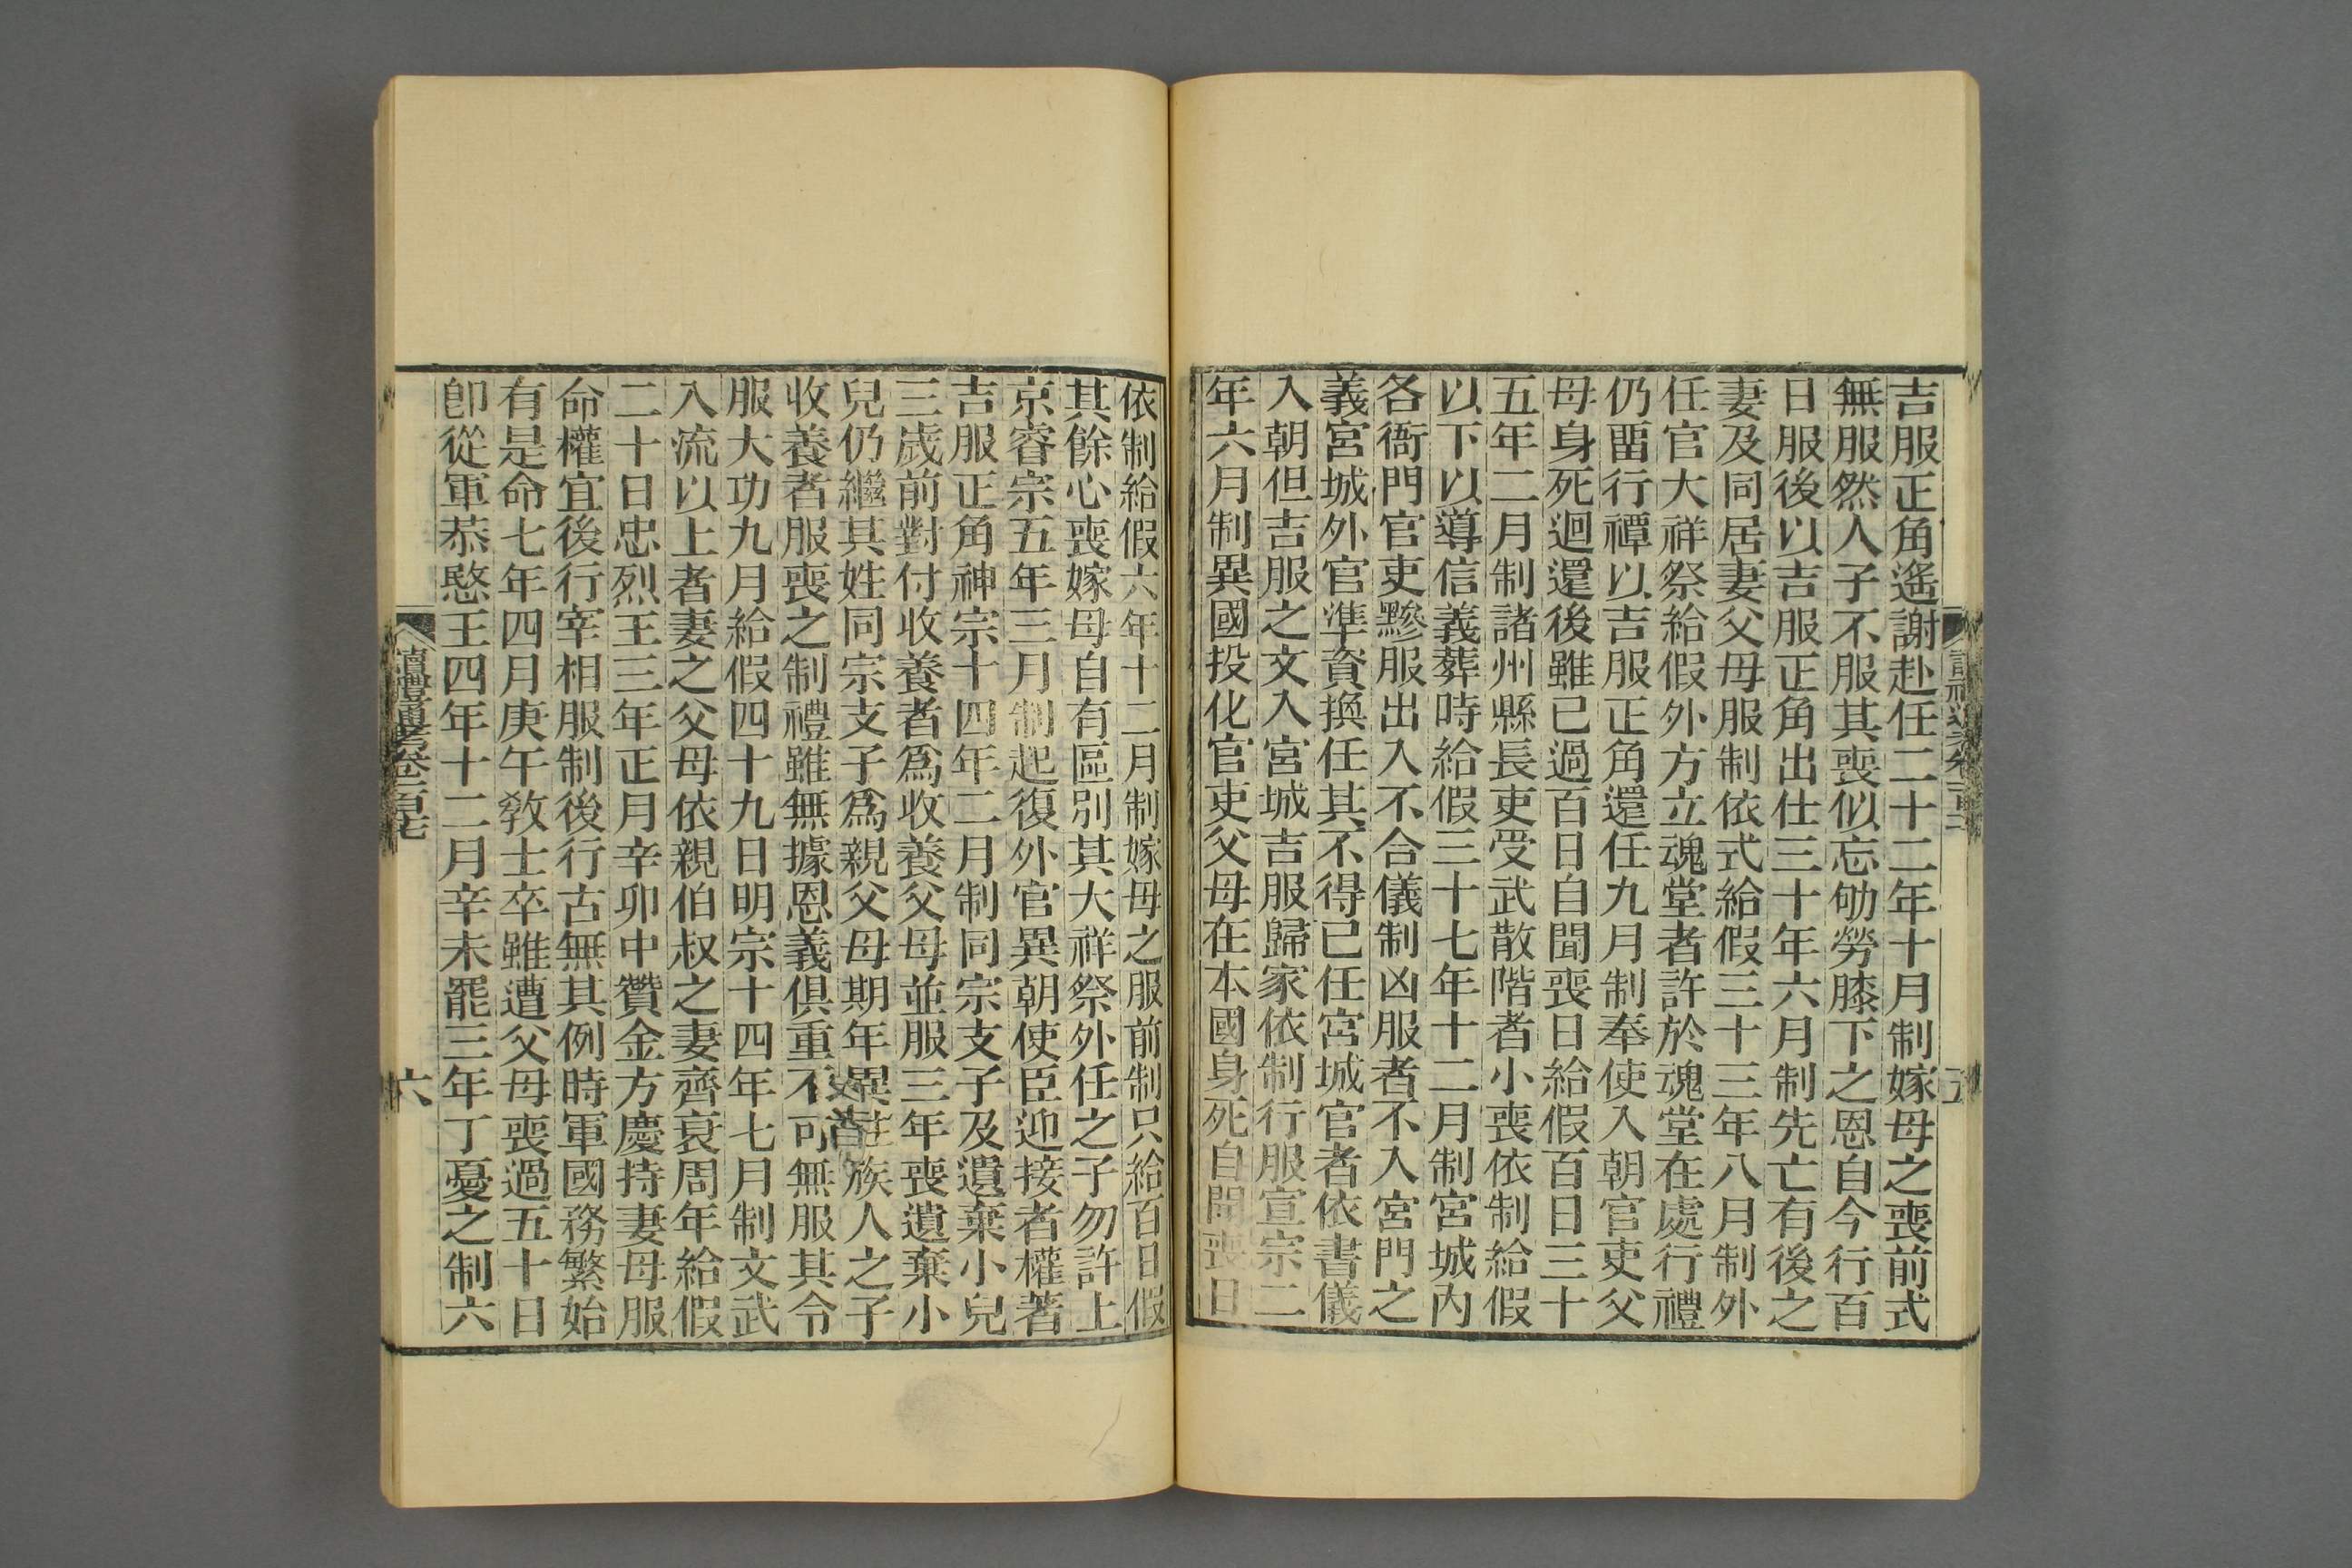 吉服正角遙謝赴任二十二年十月制嫁母之喪前式
無服然人子不服其喪似忘劬勞膝下之恩自今行百
日服後以吉服正角出仕三十年六月制先亡有後之
妻及同居妻父母服制依式給假三十三年八月制外
任官大祥祭給假外方立魂堂者許於魂堂在處行禮
仍畱行禫以吉服正角還任九月制奉使入朝官吏父
母身死迴還後雖已過百日自聞喪日給假百日三十
五年二月制諸州縣長吏受武散階者小喪依制給假
以下以導信義葬時給假三十七年十二月制宮城內
各衙門官吏黲服出入不合儀制凶服者不入宮門之
義宮城外官準資換任其不得已任宮城官者依書儀
入朝但吉服之文入宮城吉服歸家依制行服宣宗二
年六月制異國投化官吏父母在本國身死自聞喪日
依制給假六年十二月制嫁母之服前制只給百日假
其餘心喪嫁母自有區別其大祥祭外任之子勿許上
京睿宗五年三月制起復外官異朝使臣迎接者權著
吉服正角神宗十四年二月制同宗支子及遺棄小兒
三歲前對付收養者爲收養父母並服三年喪遺棄小
兒仍繼其姓同宗支子爲親父母期年異姓族人之子
收養者服喪之制禮雖無據恩義俱重不可無服其令
服大功九月給假四十九日明宗十四年七月制文武
入流以上者妻之父母依親伯叔之妻齊衰周年給假
二十日忠烈王三年正月辛卯中贊金方慶持妻母服
命權宜後行宰相服制後行古無其例時軍國務繁始
有是命七年四月庚午敎士卒雖遭父母喪過五十日
卽從軍恭愍王四年十二月辛未罷三年丁憂之制六
讀禮通考卷一百七
六